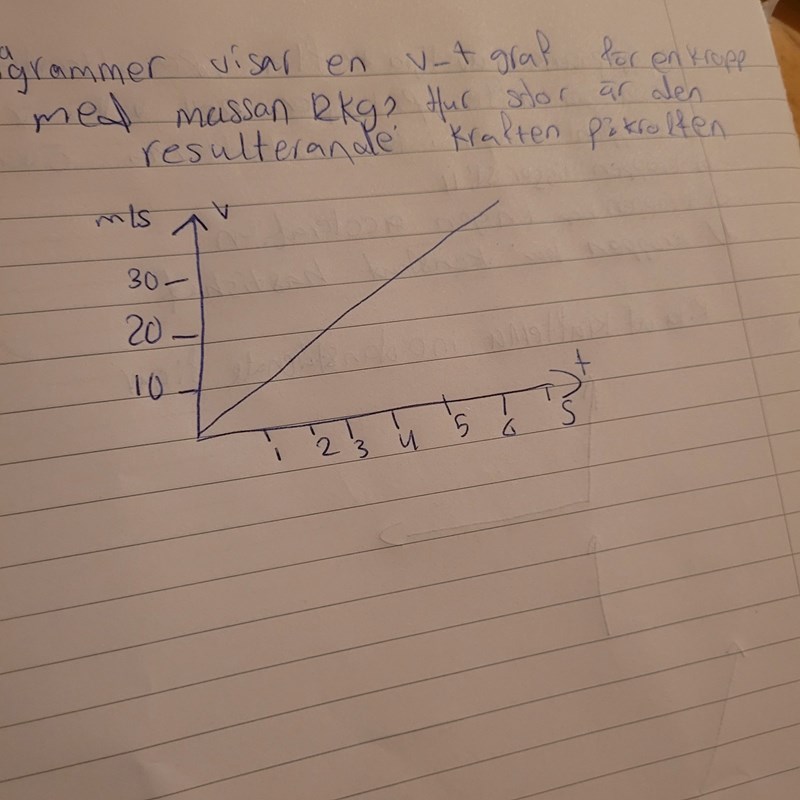 grammer visar en v-t graf för en kropp
med massan 2kg? Hur stor är den
resulterande kraften på kroften
m/s v
30
20
10
t
1 2 3 4 5 6 s